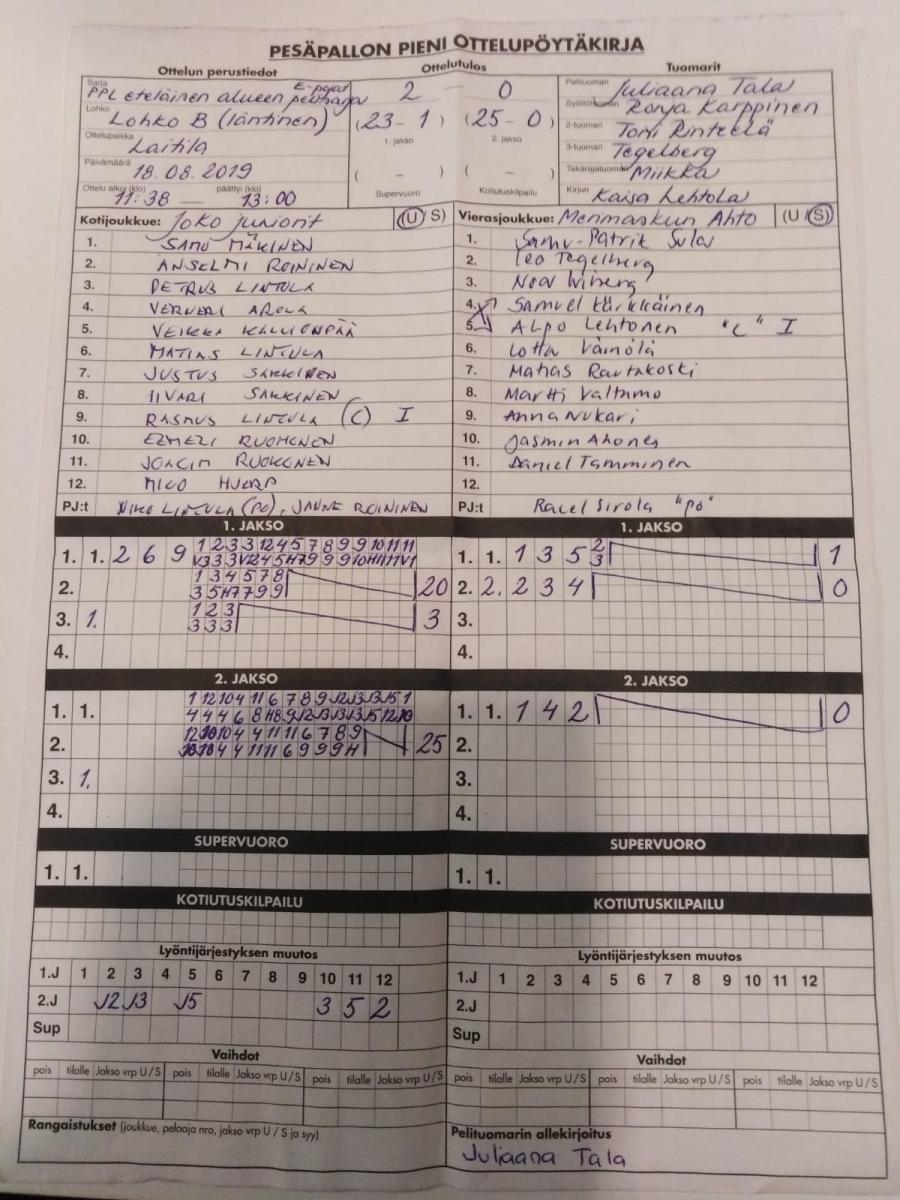 PESÄPALLON PIENI OTTELUPÖYTÄKIRJA
Ottelun perustiedot Ottelutulos Tuomarit
Sarja PPL eteläinen alueen E-pojat
2 — 0
Pelituomari Juliaana Tala
Lohko Lohko B (läntinen)
(23 - 1) 1. jakso (25 - 0) 2. jakso
Ronja Karppinen
Ottelupaikka Laitila
2-tuomari Tomi Rinteelä
3-tuomari Tegelberg
Päivämäärä 18.08.2019
( - ) Supervuoro ( - ) Kotiutuskilpailu
Takarajatuomari Miikka
Ottelu alkoi (klo) 11:38 — päättyi (klo) 13:00
Kirjuri Kaisa Lehtola
Kotijoukkue: Joko juniorit (U S)
1. SAMU MÄKINEN
2. ANSELMI ROININEN
3. PETRUS LINTULA
4. VERNERI AROLA
5. VEIKKA KALLIONPÄÄ
6. MATIAS LINTULA
7. JUSTUS SAKKINEN
8. IIVARI SAKKINEN
9. RASMUS LINTULA (C) I
10. RUOHONEN
11. JOACIM RUOKONEN
12. NICO
PJ:t NIKO LINTULA (PO), JANNE ROININEN
Vierasjoukkue: Merimaskun Ahto (U S)
1. Samu-Patrik Sula
2. Leo Tegelberg
3. Noa Wiberg
4. Samuel Kärkkäinen
5. Alpo Lehtonen "C" I
6. Lotta Väinölä
7. Matias Rautakoski
8. Martti Valtamo
9. Anna Nukari
10. Jasmin Ahonen
11. Daniel Tamminen
12.
PJ:t Sirola "po"
1. JAKSO
1. 1. 2 6 9 1 2 3 3 12 4 5 7 8 9 9 10 11 11
2. 1 3 4 5 7 8
3 5 H 7 7 9 9 20
3. 1. 1 2 3
3 3 3 3
4.
1. JAKSO
1. 1. 1 3 5 2
3 1
2. 2. 2 3 4 0
3.
4.
2. JAKSO
1. 1. 1 12 10 4 11 6 7 8 9 12 13 13 15 1
2. 25
3. 1.
4.
2. JAKSO
1. 1. 1 4 2 0
2.
3.
4.
SUPERVUORO
1. 1.
SUPERVUORO
1. 1.
KOTIUTUSKILPAILU
KOTIUTUSKILPAILU
Lyöntijärjestyksen muutos
1.J 1 2 3 4 5 6 7 8 9 10 11 12
2.J 12 13 15 3 5 2
Sup
Lyöntijärjestyksen muutos
1.J 1 2 3 4 5 6 7 8 9 10 11 12
2.J
Sup
Vaihdot
pois tilalle Jakso vrp U / S pois tilalle Jakso vrp U / S pois tilalle Jakso vrp U / S
Vaihdot
pois tilalle Jakso vrp U / S pois tilalle Jakso vrp U / S pois tilalle Jakso vrp U / S
Rangaistukset (joukkue, pelaaja nro, jakso vrp U / S ja syy)
Pelituomarin allekirjoitus
Juliaana Tala